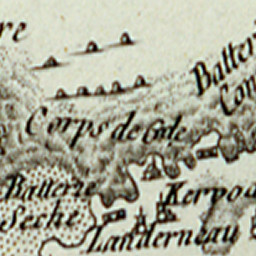 re
Batterie
Con
Corps de Gde
Batterie
Seche
Kervod
Landerneau